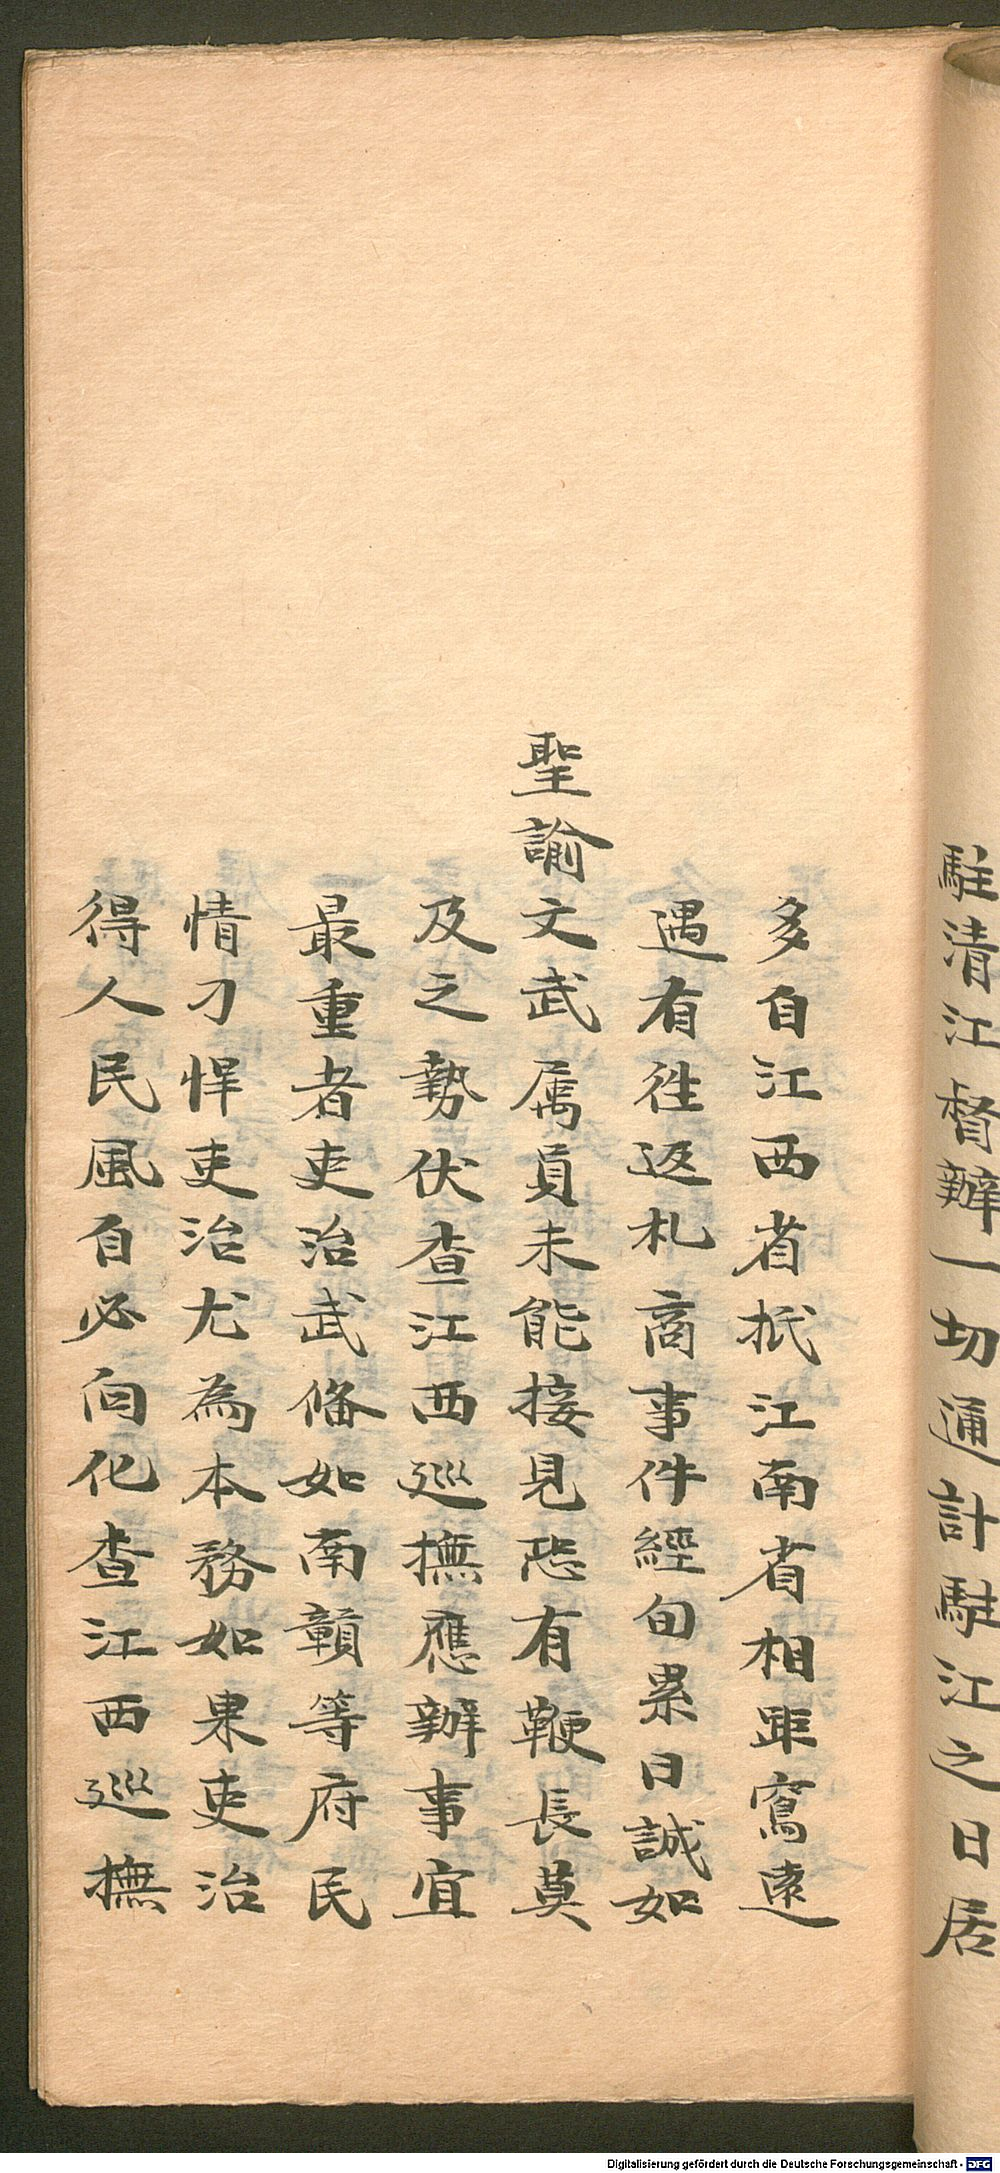 駐清江督辦一切通計駐江之日居
多自江西省抵江南省相距寫遠
遇有徃返札商事件經旬累日誠如
聖諭文武属員未能接見恐有鞭長莫
及之勢伏查江西巡撫應辦事宜
最重者吏治武俻如南贑等府民
情刁悍吏治尤為本務如果吏治
得人民風自必向化查江西巡撫
Digitalisierung gefördert durch die Deutsche Forschungsgemeinschaft - DFG